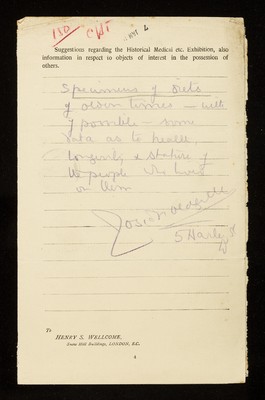 180 CHT
Suggestions regarding the Historical Medical etc. Exhibition, also
information in respect to objects of interest in the possession of
others.
Specimens of diets
of olden times – with
if possible – some
data as to health,
longevity & stature of
the people who lived
on them
Josiah Oldfield
5 Harley St
W
To
HENRY S. WELLCOME,
Snow Hill Buildings, LONDON, E.C.
4